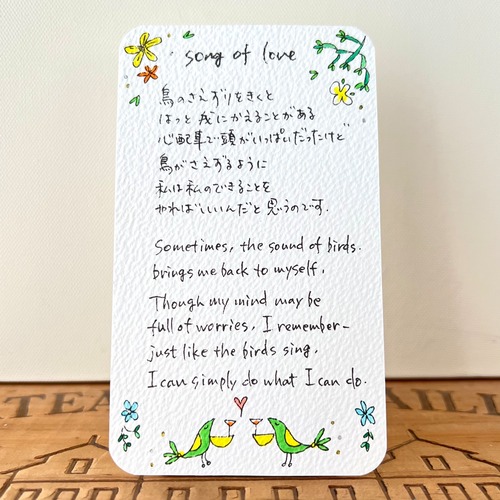 song of love
鳥のさえずりをきくと
はっと我にかえることがある
心配事で頭がいっぱいだったけど
鳥がさえずるように
私は私のできることを
やればいいんだと思うのです.
Sometimes, the sound of birds.
brings me back to myself.
Though my mind may be
full of worries, I remember-
just like the birds sing.
I can simply do what I can do.
TEA